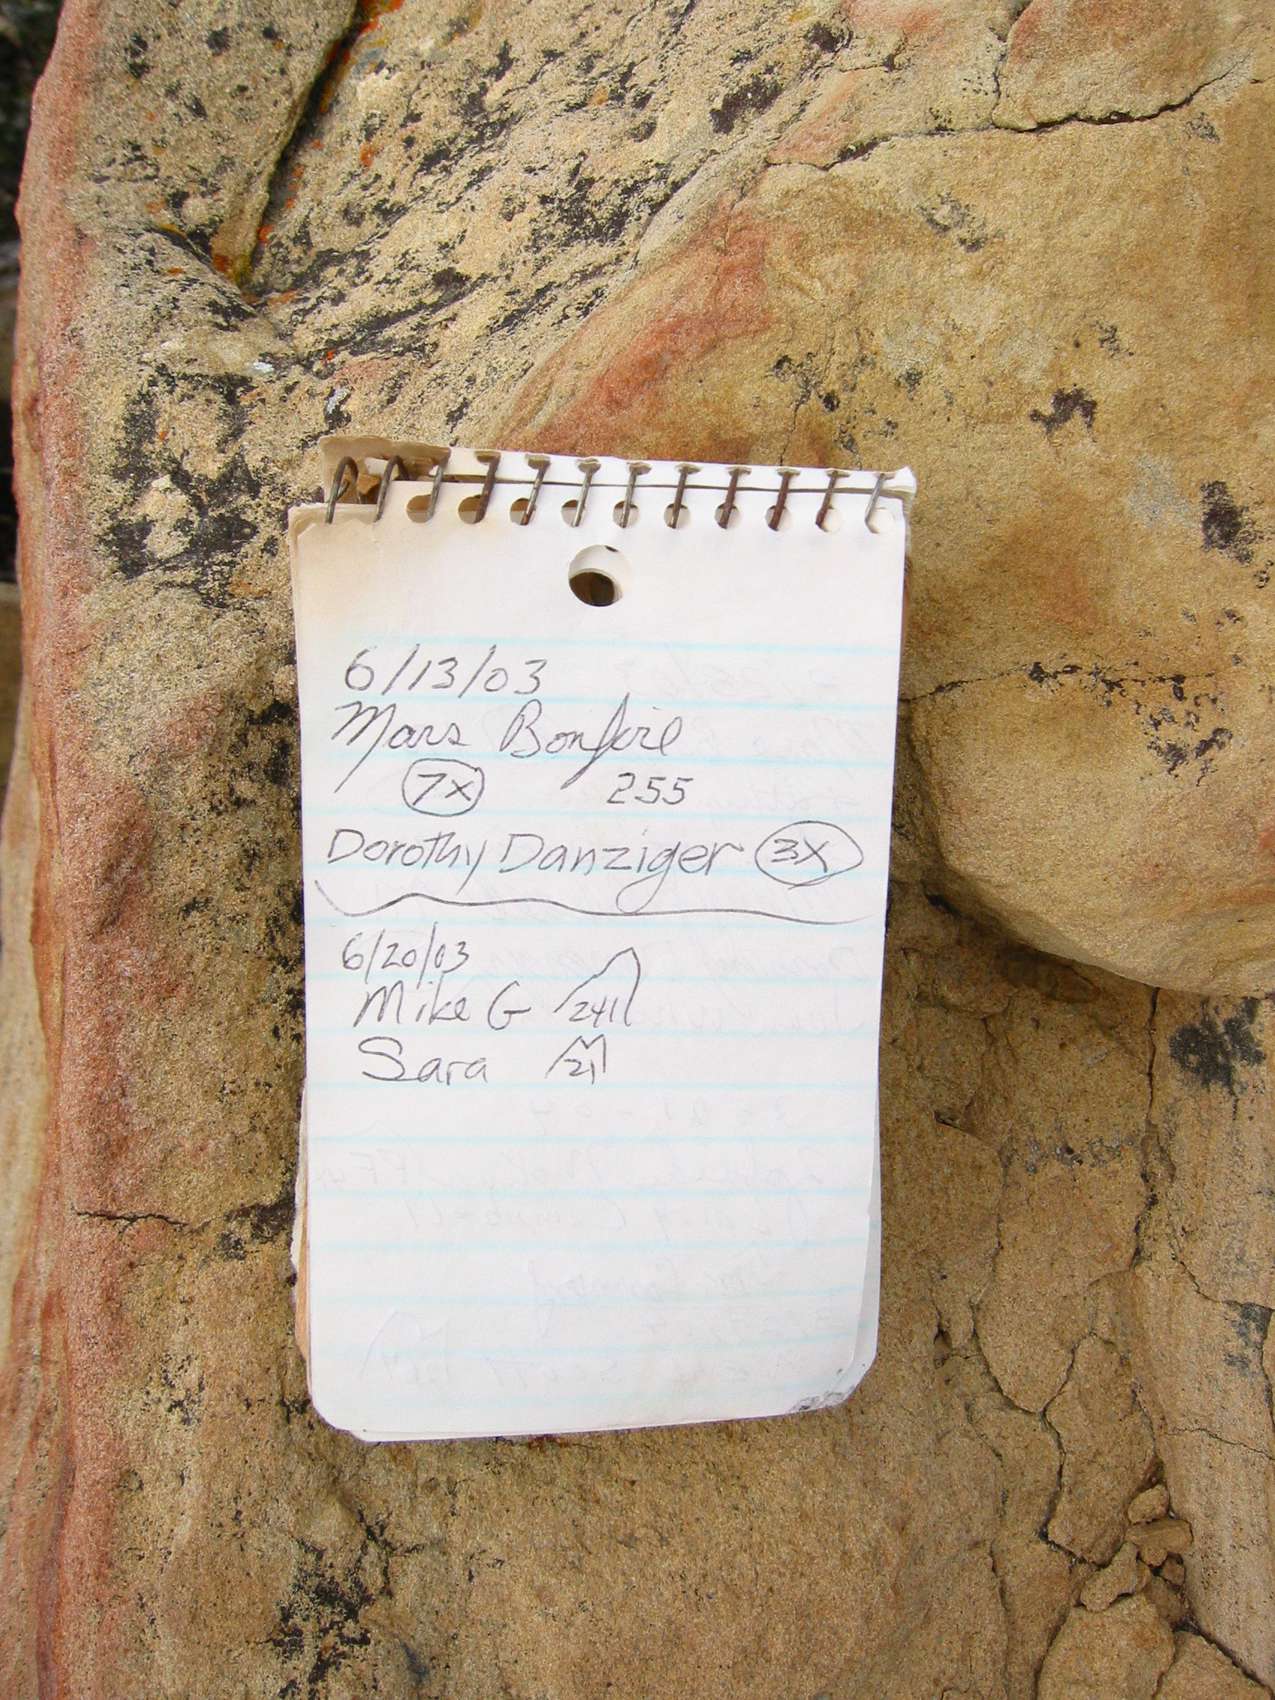 6/13/03
Mars Bonfire
7x 255
Dorothy Danziger 3X
6/20/03
Mike G 241
Sara 21